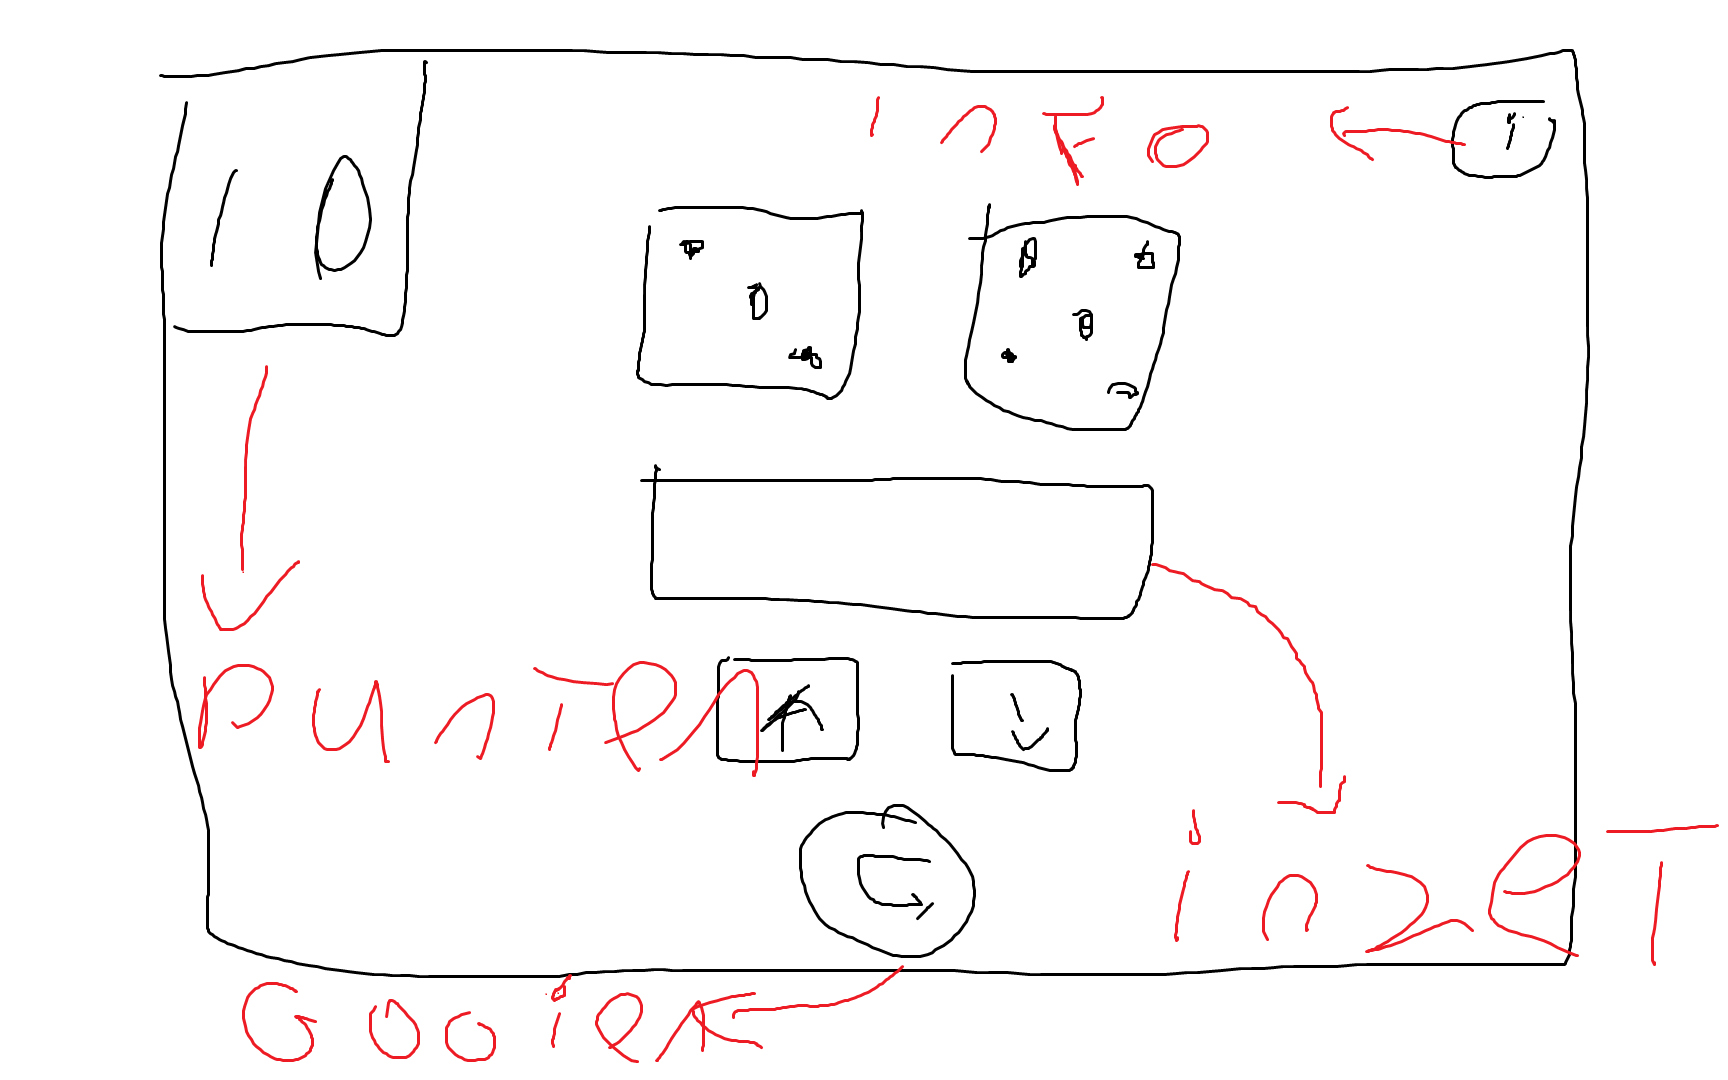 info
i
10
punten
inzet
Gooien